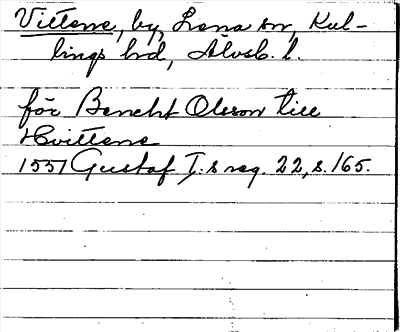 Vittene, by, Lena sn, Kul-
lings hd, Älvsb. l.
för Benckt Olsson till
Hvittene
1551 Gustaf I:s reg. 22, s. 165.